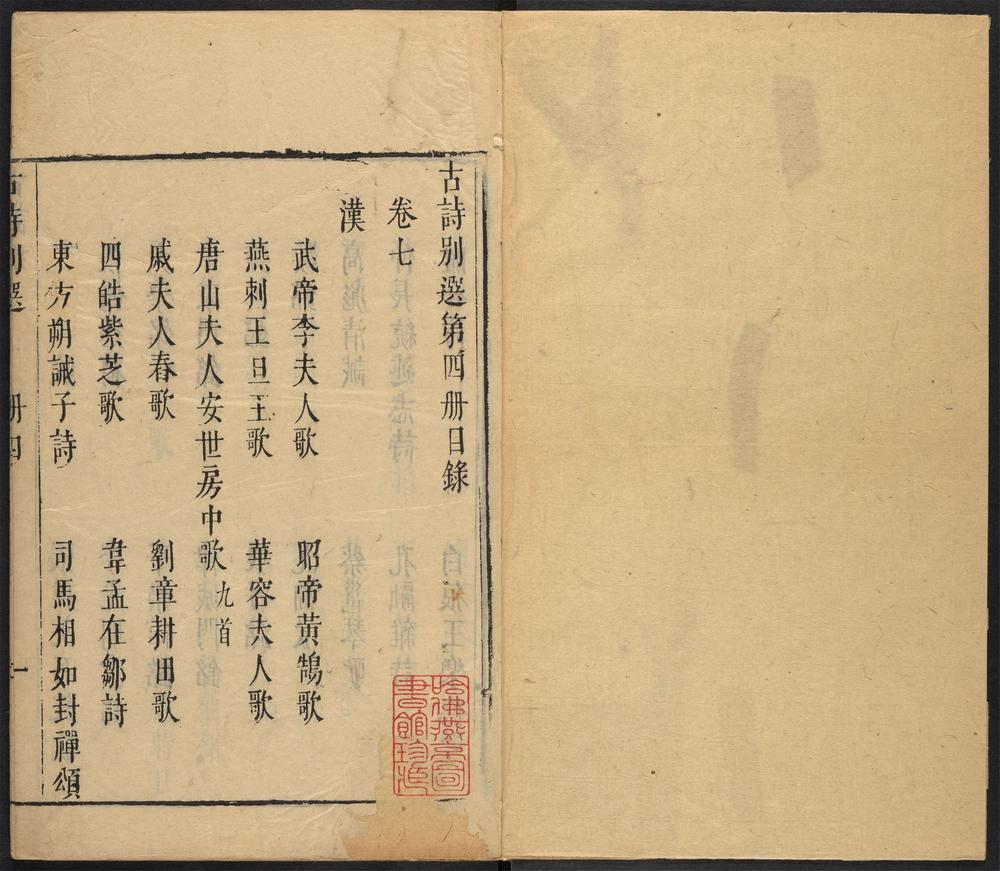 古詩別選第四册目錄
卷七
漢
武帝李夫人歌 昭帝黃鵠歌
燕剌王旦王歌 華容夫人歌
唐山夫人安世房中歌九首
戚夫人舂歌 劉章耕田歌
四皓紫芝歌 韋孟在鄒詩
東方朔誡子詩 司馬相如封禪頌
古詩別選 册四 一
哈佛燕京圖書館珍藏